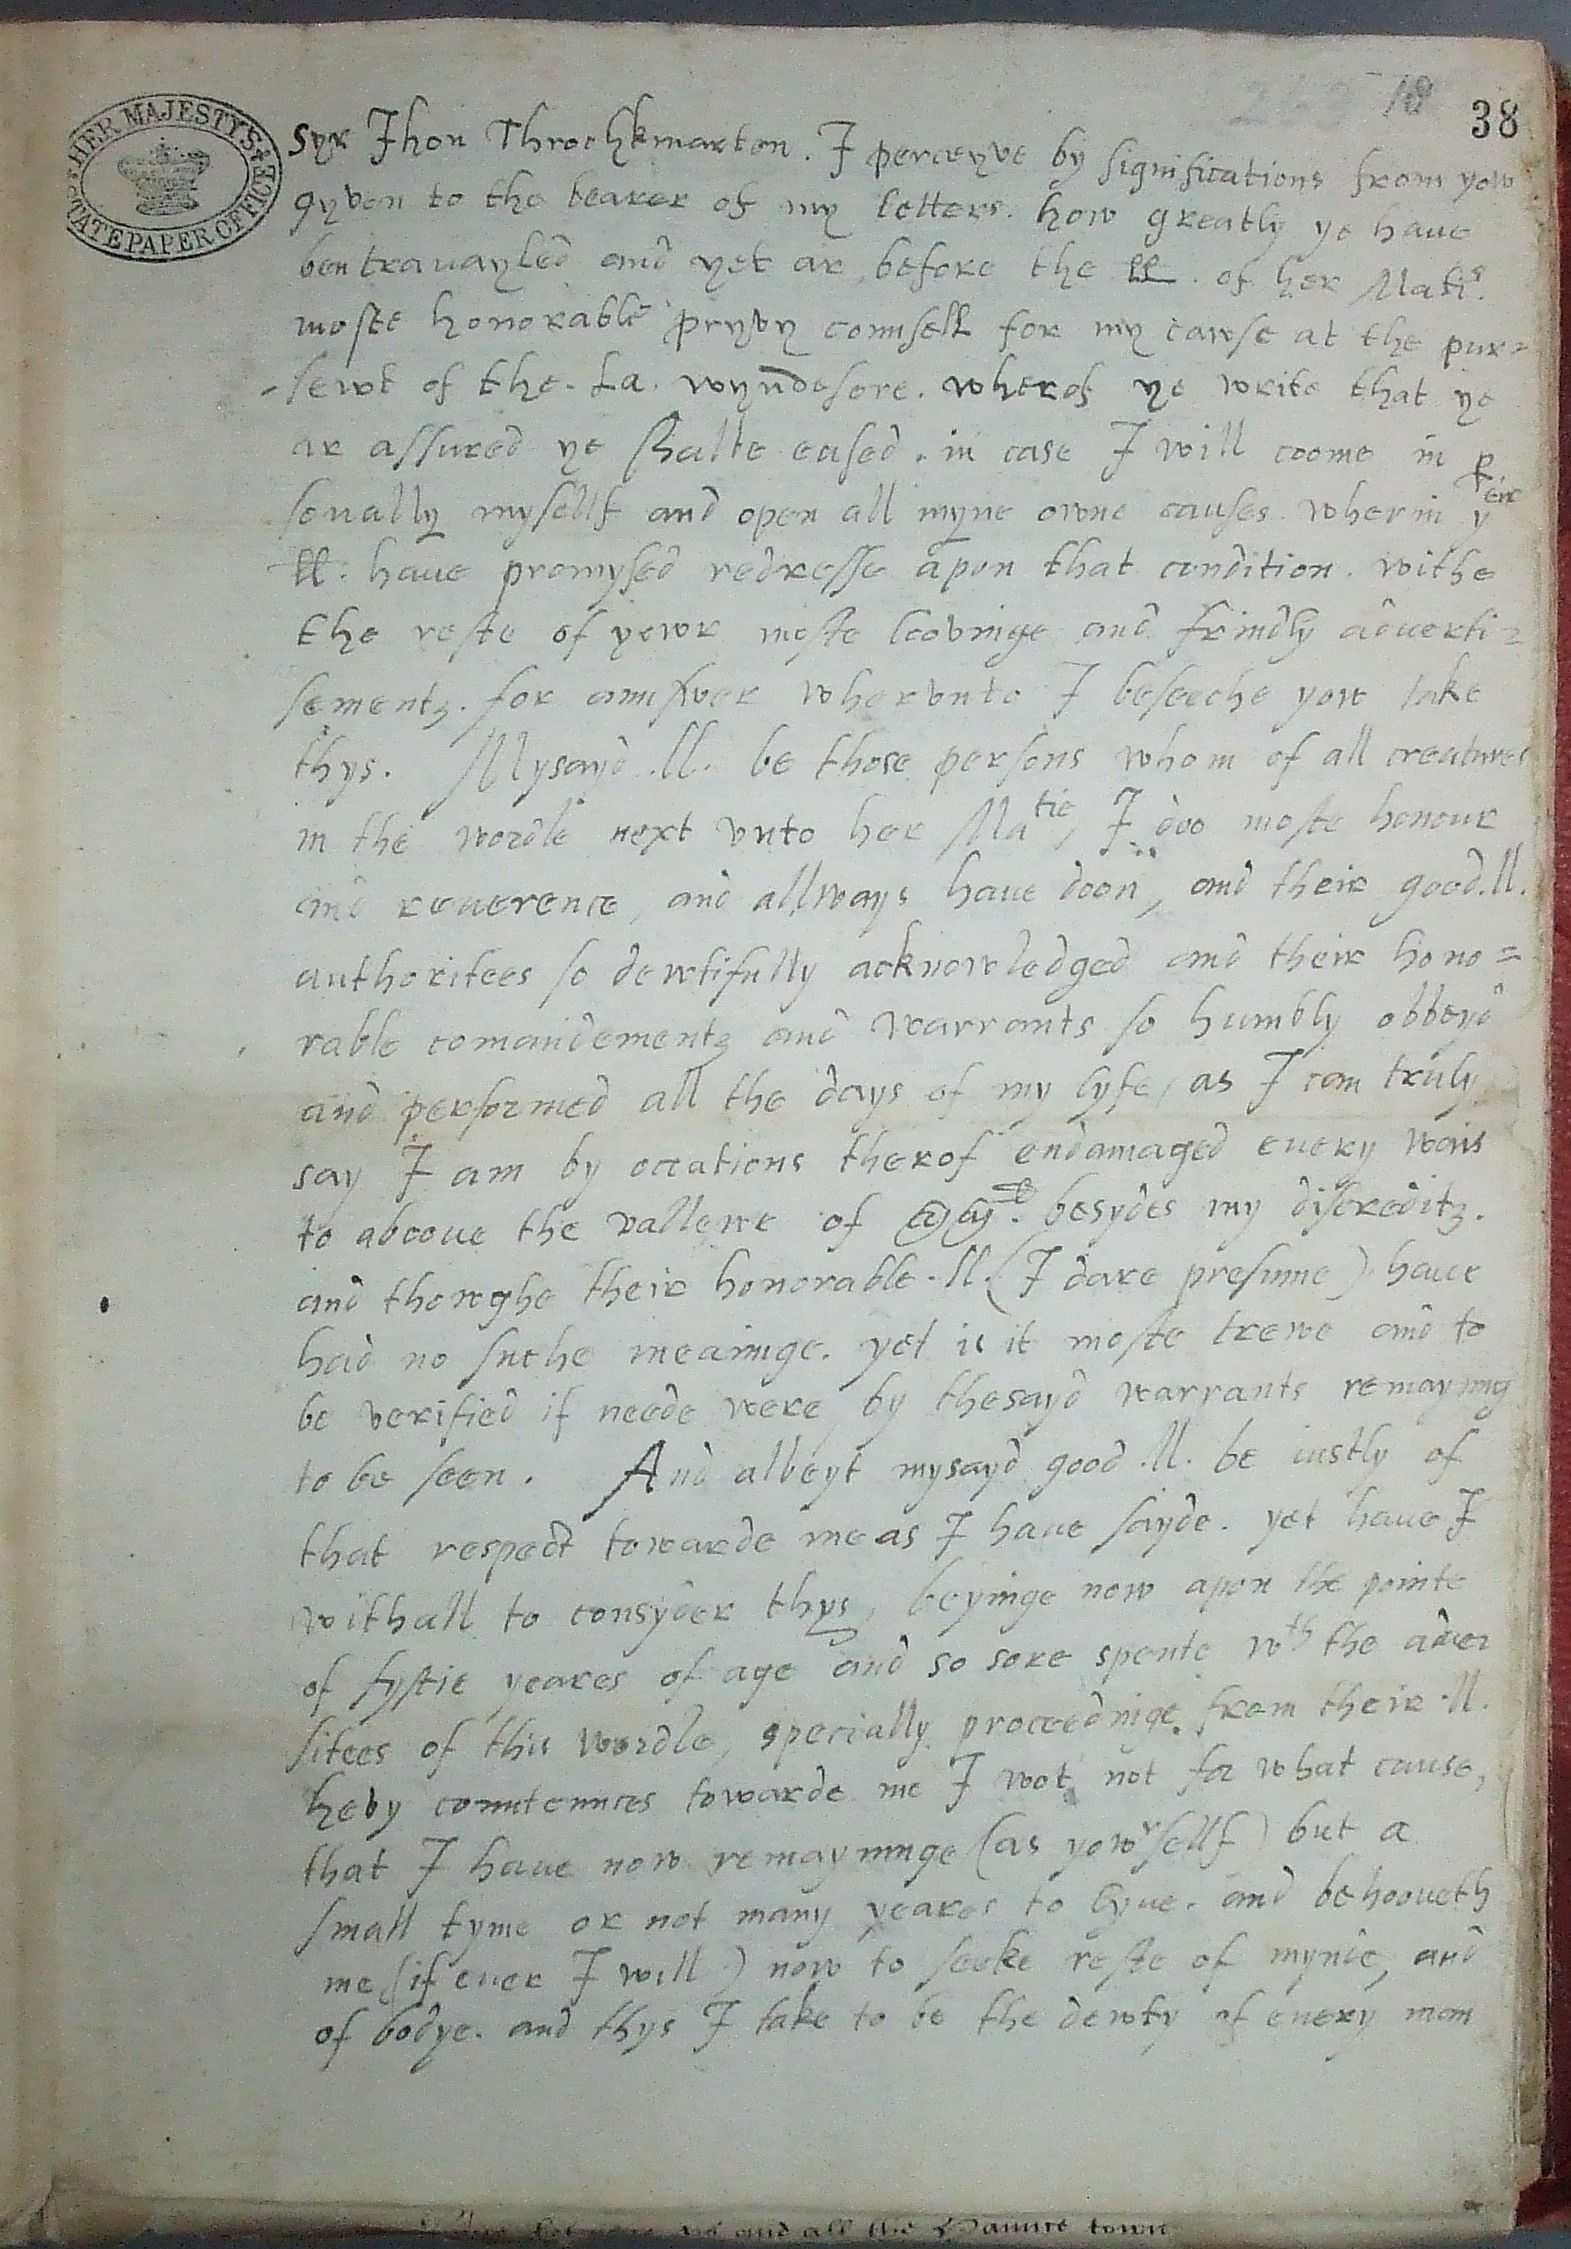 HER MAJESTY'S STATE PAPER OFFICE
38
Syr Jhon Throchkmarton. I perceyve by significations from yow
gyven to the bearer of my letters. how greatly ye haue
ben trauayled and yet ar, before the ll. of her Matis.
moste honorable pryvy counsell for my cawse at the pur=
-sewt of the. La. wyndesore. wherof ye write that ye
ar assured ye shalbe eased. in case I will coome in p
sonally mysellf and open all myne owne causes. wherin yeir
ll. haue promysed redresse apon that condition. withe
the reste of yowr moste loovinge and frindly aduerti=
sementz. for aunswer wherunto I beseeche yow take
thys. My sayd .ll. be those persons whom of all creatures
in the wordle next vnto her Matie, I doo moste honour
and reuerence, and allways haue doon, and their good .ll.
authoritees so dewtifully acknowledged and their hono=
rable comaundementz and warrants so humbly obbeyd
and performed all the days of my lyfe, as I can truly
say I am by occations therof endamaged euery wais
to aboove the vallewe of besydes my discreditz.
and thowghe their honorable .ll. (I dare presume) haue
had no suche meaninge. yet is it moste trewe and to
be verified if neede were, by thesayd warrants remayning
to be seen. And albeyt mysayd good .ll. be iustly of
that respect towarde me as I haue sayde. yet haue I
withall to consyder thys, beyinge now apon the pointe
of fyftie yeares of age and so sore spente wth the aduer
sitees of this wordle, specially proceedinge from their .ll.
hevy countenunces towarde me I wot not for what cause,
that I haue now remayninge (as yowrsellf) but a
small tyme or not many yeares to lyue. and behooueth
me (if euer I will) now to seeke reste of mynde, and
of bodye. and thys I take to be the dewty of euery man
and all the town